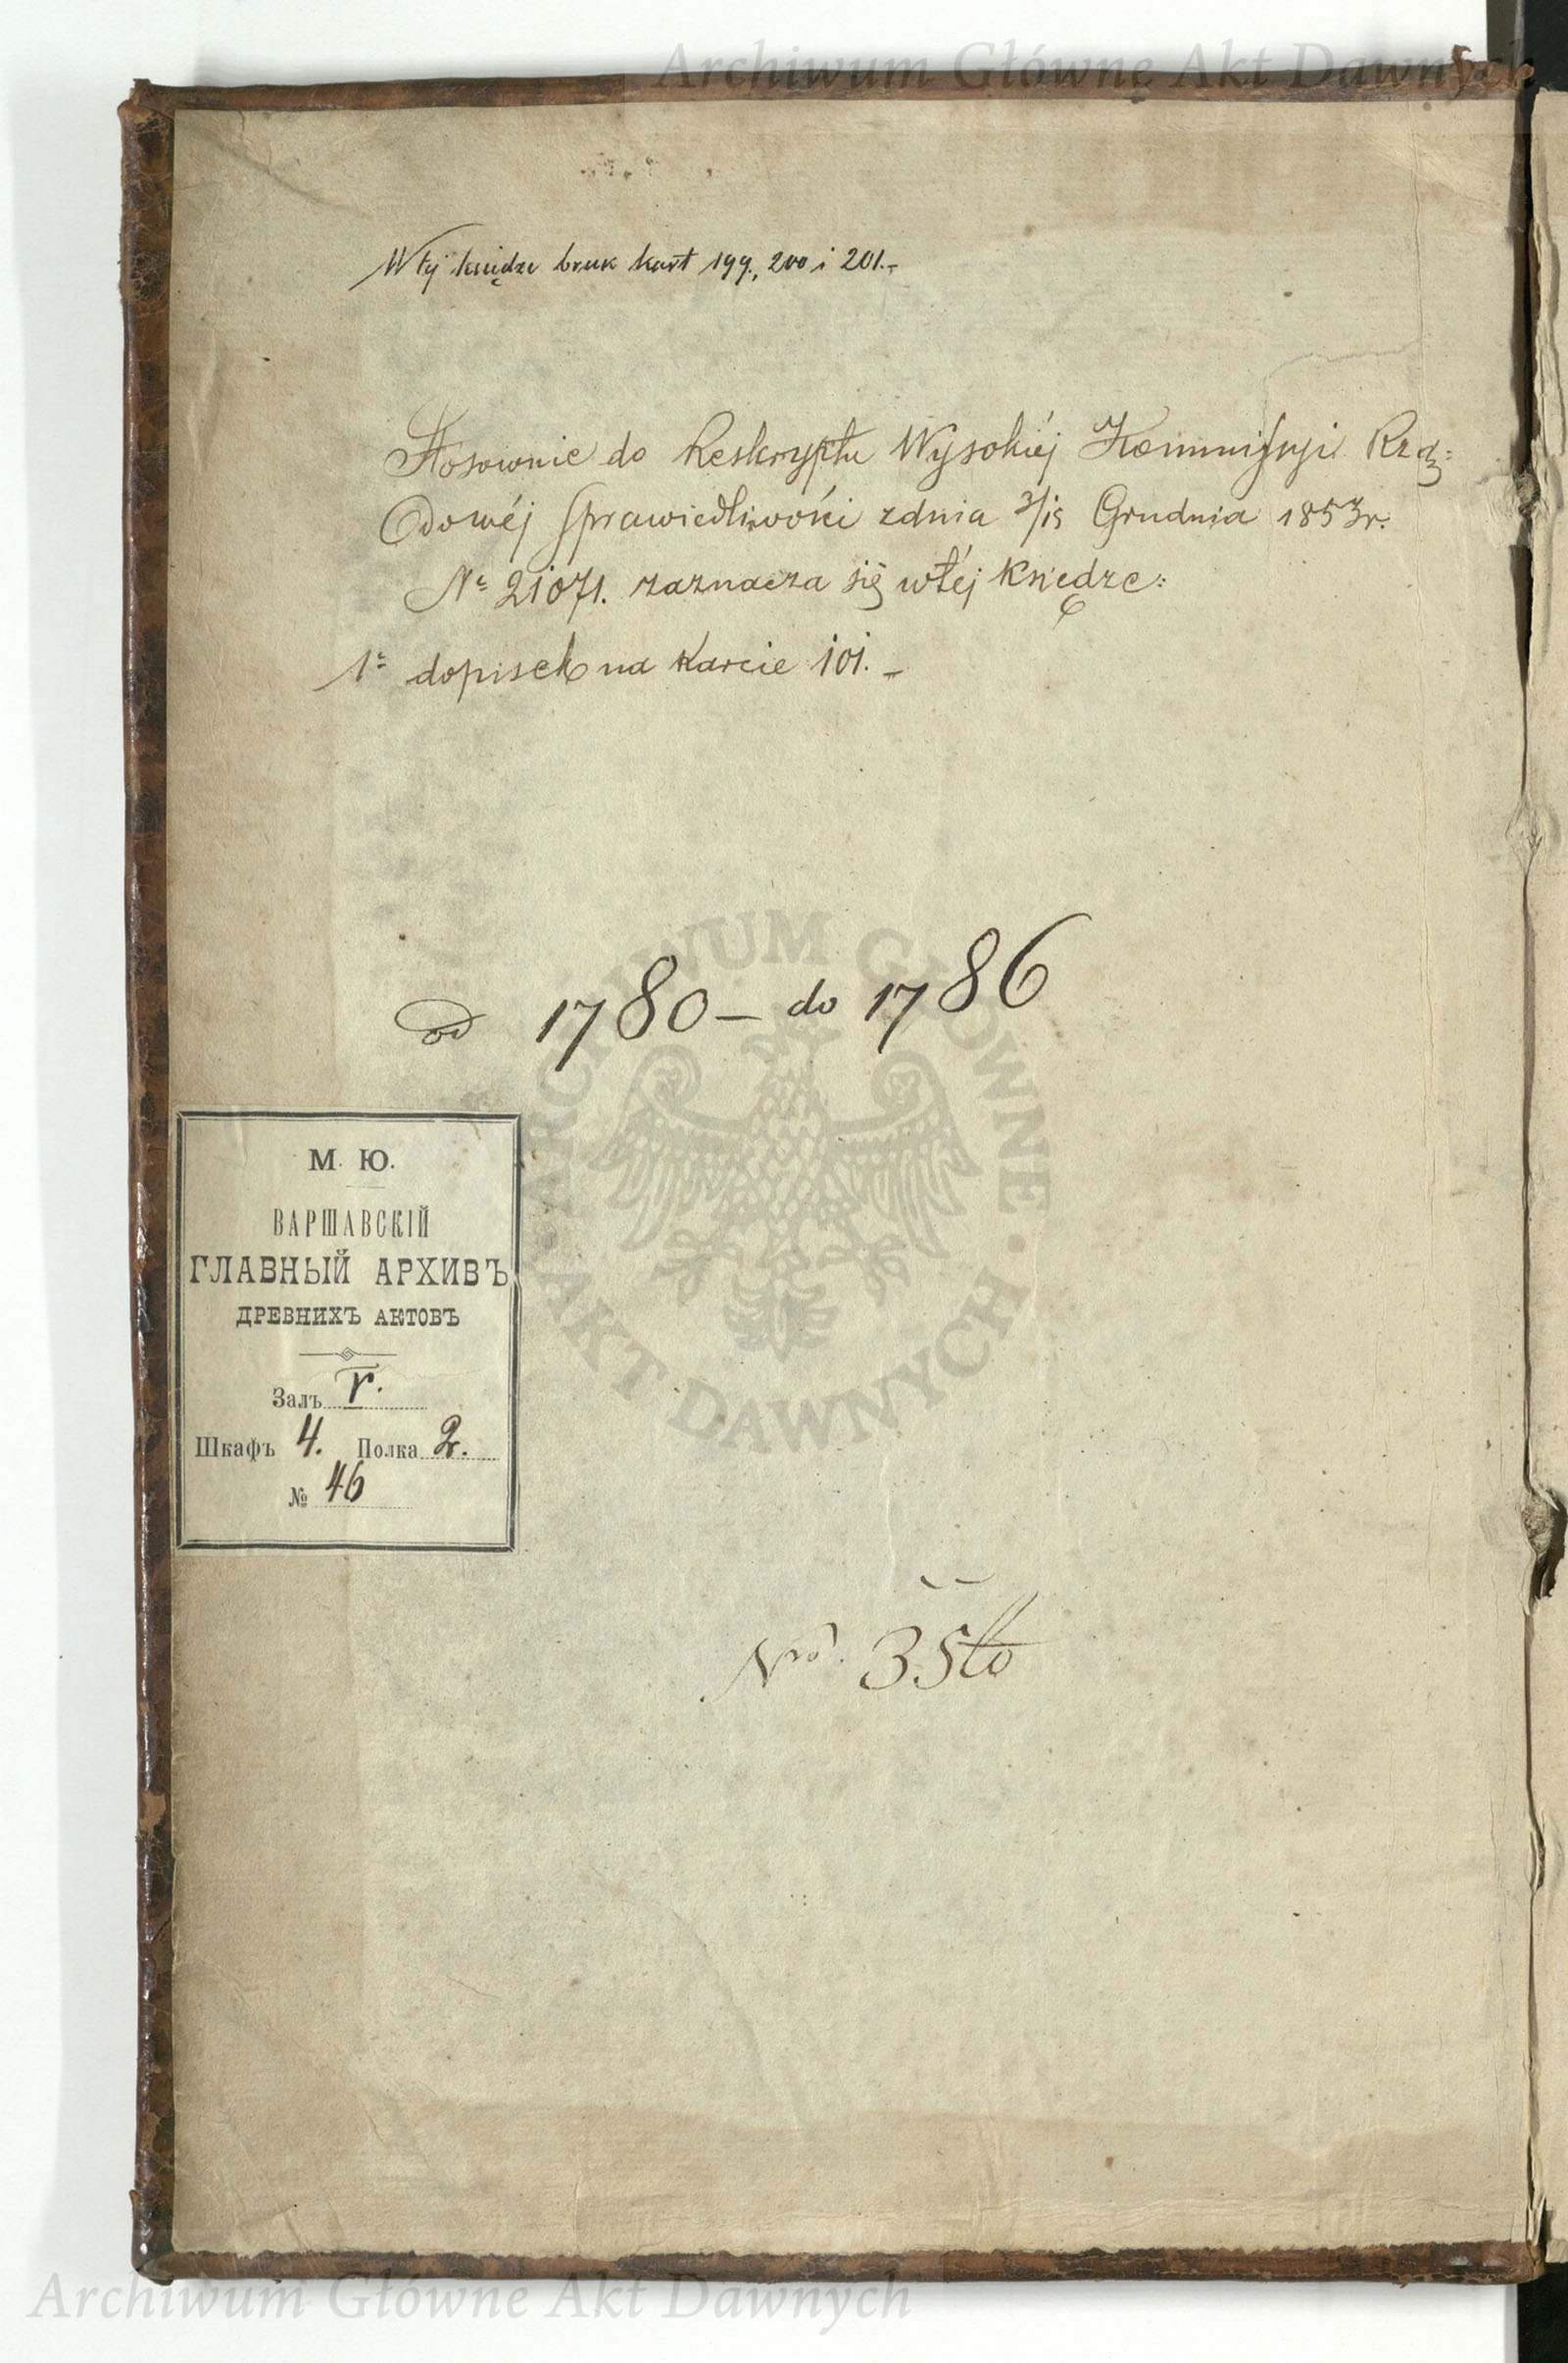 Archiwum Główne Akt Dawnych
W tej księdze brak kart 199., 200 i 201.-
Stosownie do Reskryptu Wysokiéj Kommissyi Rzą=
dowéj Sprawiedliwości z dnia 3/15 Grudnia 1853 r.
Nr 21071. zaznacza się w téj Księdze:
1e dopisek na Karcie 101.-
od 1780 - do 1786
ARCHIWUM GŁÓWNE · AKT DAWNYCH ·
М. Ю.
ВАРШАВСКІЙ
ГЛАВНЫЙ АРХИВЪ
ДРЕВНИХЪ АКТОВЪ
Залъ
Шкафъ 4. Полка 2.
№ 46
Nro. 35to
Archiwum Główne Akt Dawnych